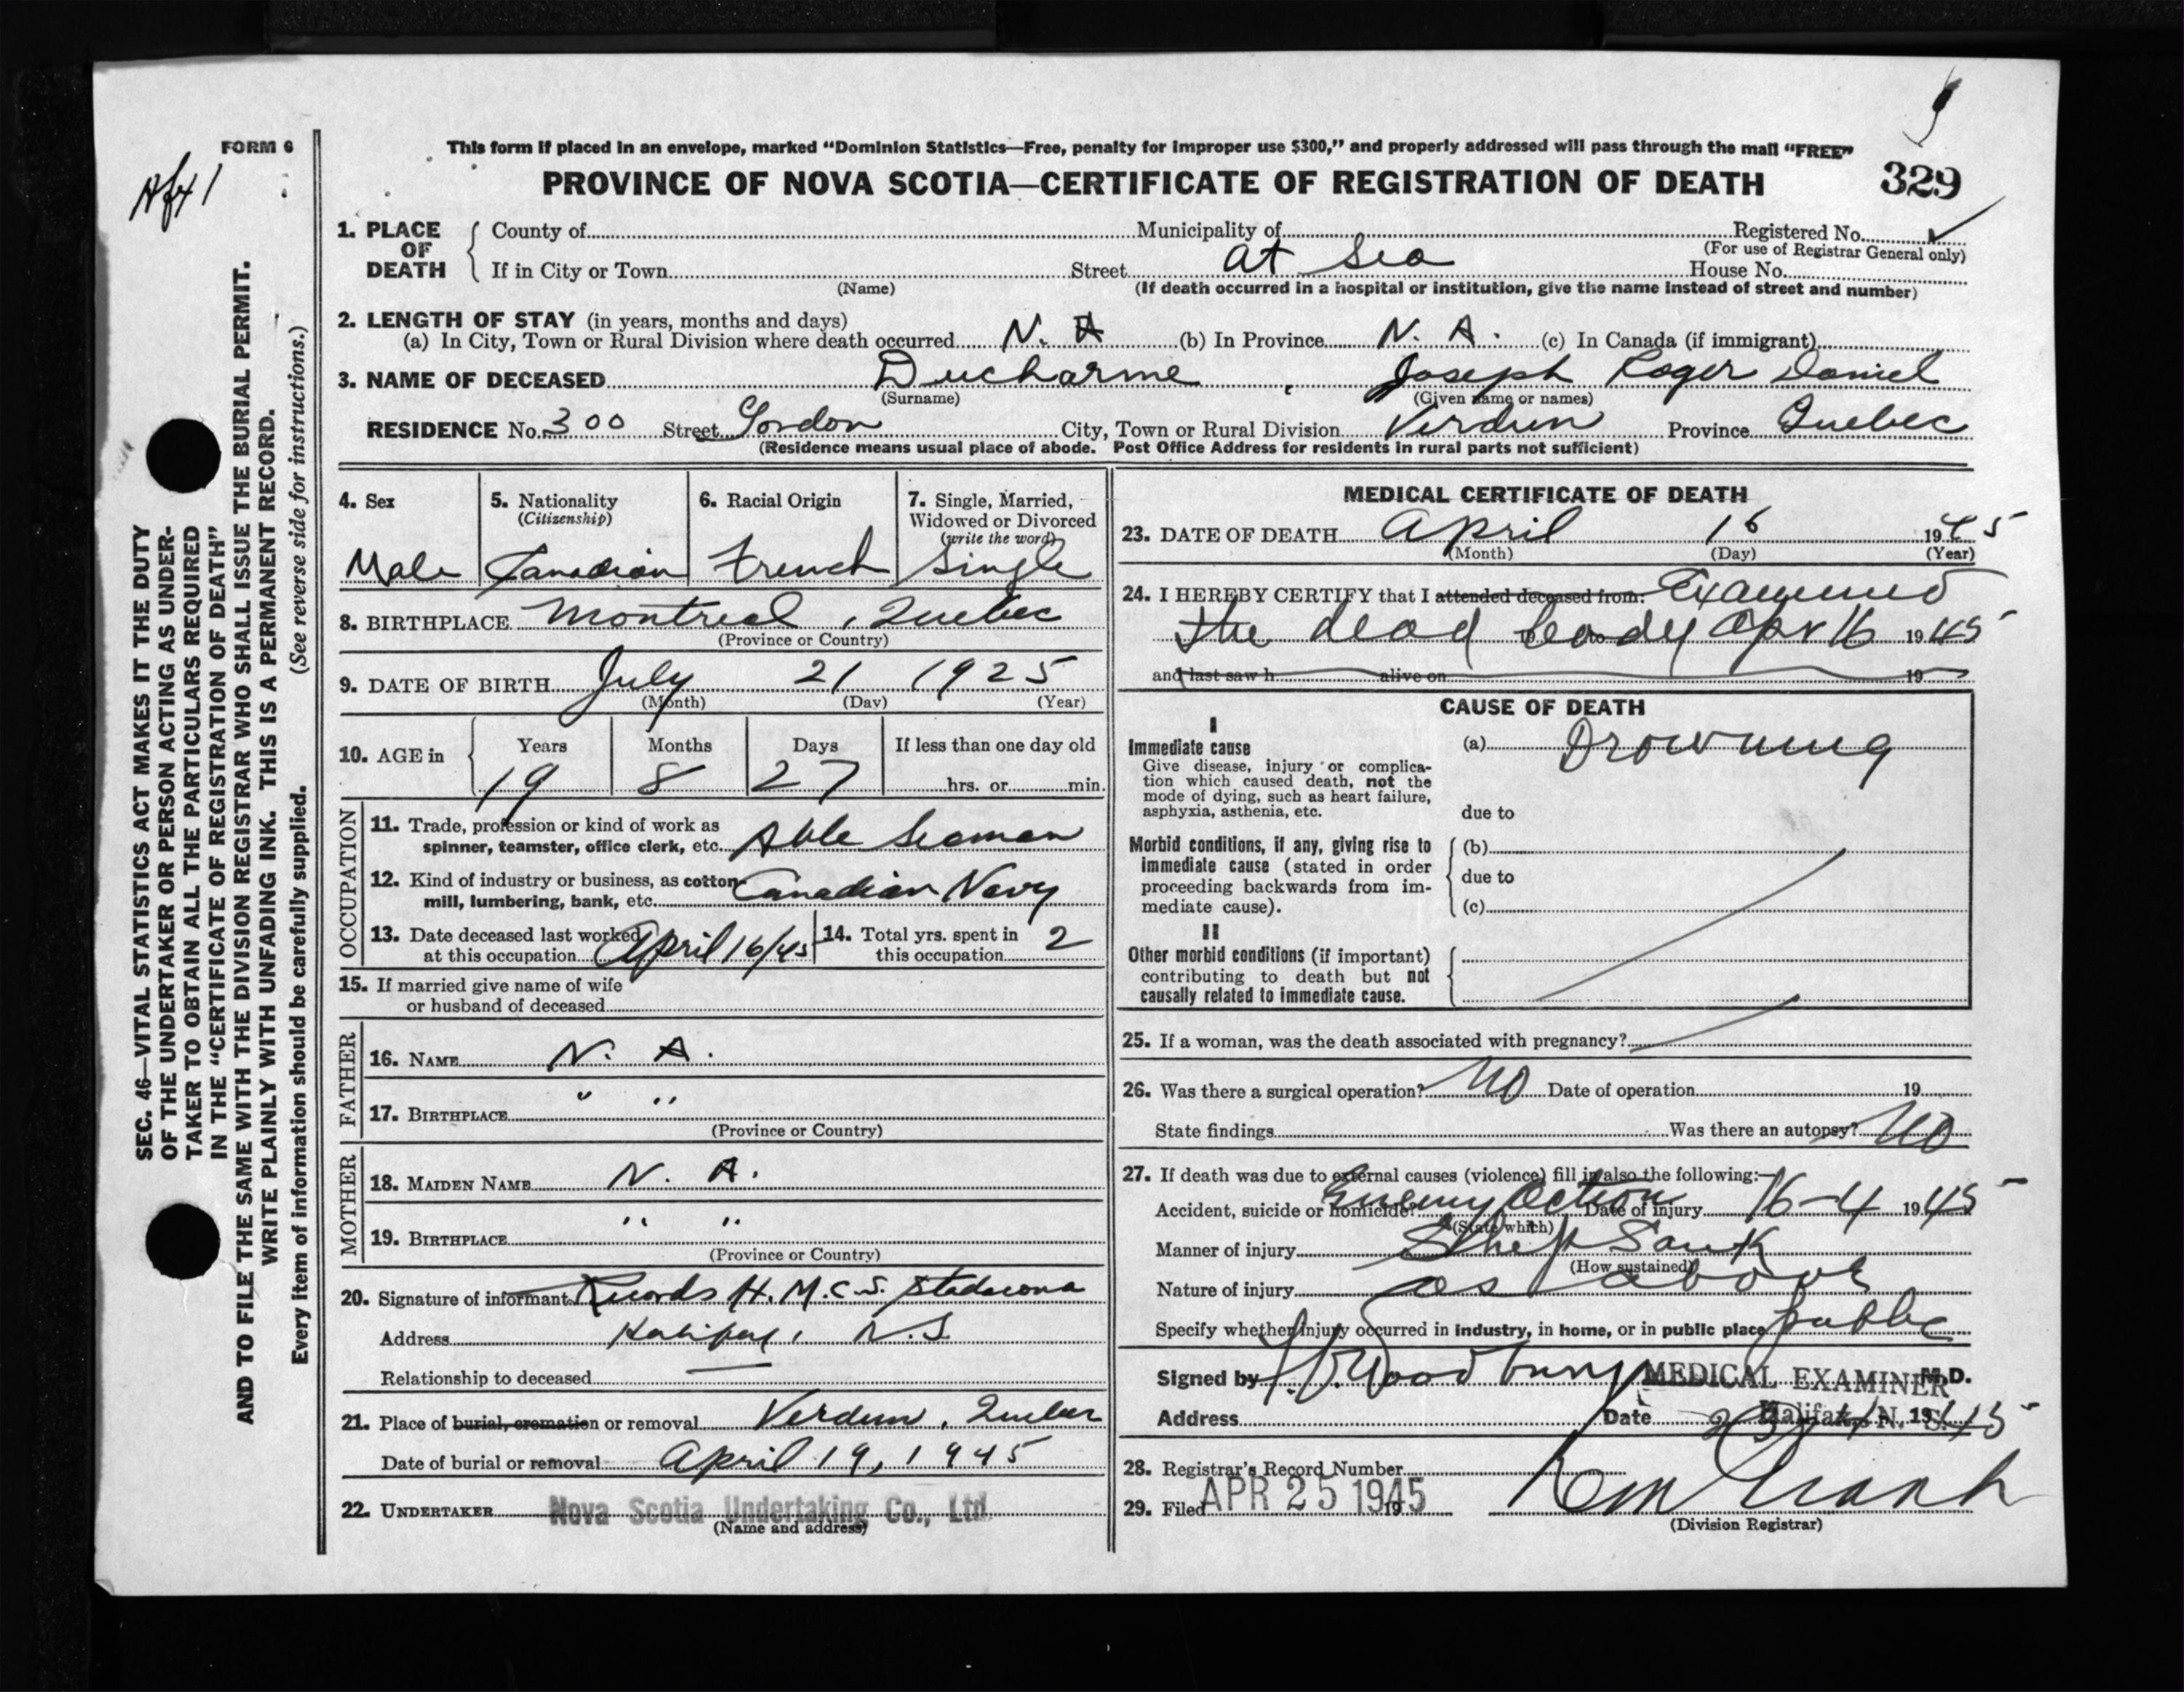 FORM 6
Hfx 1
This form if placed in an envelope, marked “Dominion Statistics—Free, penalty for improper use $300,” and properly addressed will pass through the mail “FREE”
PROVINCE OF NOVA SCOTIA—CERTIFICATE OF REGISTRATION OF DEATH 329
1. PLACE OF DEATH
County of Municipality of Registered No. ✓
(For use of Registrar General only)
If in City or Town Street At Sea House No.
(Name) (If death occurred in a hospital or institution, give the name instead of street and number)
2. LENGTH OF STAY (in years, months and days)
(a) In City, Town or Rural Division where death occurred N. A (b) In Province N. A. (c) In Canada (if immigrant)
3. NAME OF DECEASED Ducharme, Joseph Roger Daniel
(Surname) (Given name or names)
RESIDENCE No. 300 Street Gordon City, Town or Rural Division Verdun Province Quebec
(Residence means usual place of abode. Post Office Address for residents in rural parts not sufficient)
4. Sex
Male
5. Nationality
(Citizenship)
Canadian
6. Racial Origin
French
7. Single, Married,
Widowed or Divorced
(write the word)
Single
8. BIRTHPLACE Montreal, Quebec
(Province or Country)
9. DATE OF BIRTH July 21 1925
(Month) (Day) (Year)
10. AGE in Years Months Days If less than one day old
19 8 27 hrs. or min.
OCCUPATION
11. Trade, profession or kind of work as
spinner, teamster, office clerk, etc. Able Seaman
12. Kind of industry or business, as cotton
mill, lumbering, bank, etc. Canadian Navy
13. Date deceased last worked
at this occupation April 16/45
14. Total yrs. spent in
this occupation 2
15. If married give name of wife
or husband of deceased
FATHER
16. NAME N. A.
17. BIRTHPLACE " "
(Province or Country)
MOTHER
18. MAIDEN NAME N. A.
19. BIRTHPLACE " "
(Province or Country)
20. Signature of informant Records H.M.C.S. Stadacona
Address Halifax, N.S
Relationship to deceased —
21. Place of burial, cremation or removal Verdun, Quebec
Date of burial or removal April 19, 1945
22. UNDERTAKER Nova Scotia Undertaking Co., Ltd
(Name and address)
MEDICAL CERTIFICATE OF DEATH
23. DATE OF DEATH April 16 1945
(Month) (Day) (Year)
24. I HEREBY CERTIFY that I attended deceased from: Examined
the dead body Apr 16 1945
and last saw h alive on 19
CAUSE OF DEATH
I
Immediate cause
Give disease, injury or complica-
tion which caused death, not the
mode of dying, such as heart failure,
asphyxia, asthenia, etc.
(a) Drowning
due to
Morbid conditions, if any, giving rise to
immediate cause (stated in order
proceeding backwards from im-
mediate cause).
(b)
due to
(c)
II
Other morbid conditions (if important)
contributing to death but not
causally related to immediate cause.
25. If a woman, was the death associated with pregnancy?
26. Was there a surgical operation? No Date of operation 19
State findings Was there an autopsy? No
27. If death was due to external causes (violence) fill in also the following:—
Accident, suicide or homicide? Enemy Action Date of injury 16-4 1945
(State which)
Manner of injury Ship Sank
(How sustained)
Nature of injury as above
Specify whether injury occurred in industry, in home, or in public place public
Signed by Woodbury MEDICAL EXAMINER M.D.
Address Halifax, N. S. Date 1945
28. Registrar's Record Number
29. Filed APR 25 1945 19
(Division Registrar)
SEC. 46—VITAL STATISTICS ACT MAKES IT THE DUTY
OF THE UNDERTAKER OR PERSON ACTING AS UNDER-
TAKER TO OBTAIN ALL THE PARTICULARS REQUIRED
IN THE “CERTIFICATE OF REGISTRATION OF DEATH”
AND TO FILE THE SAME WITH THE DIVISION REGISTRAR WHO SHALL ISSUE THE BURIAL PERMIT.
WRITE PLAINLY WITH UNFADING INK. THIS IS A PERMANENT RECORD.
Every item of information should be carefully supplied. (See reverse side for instructions.)